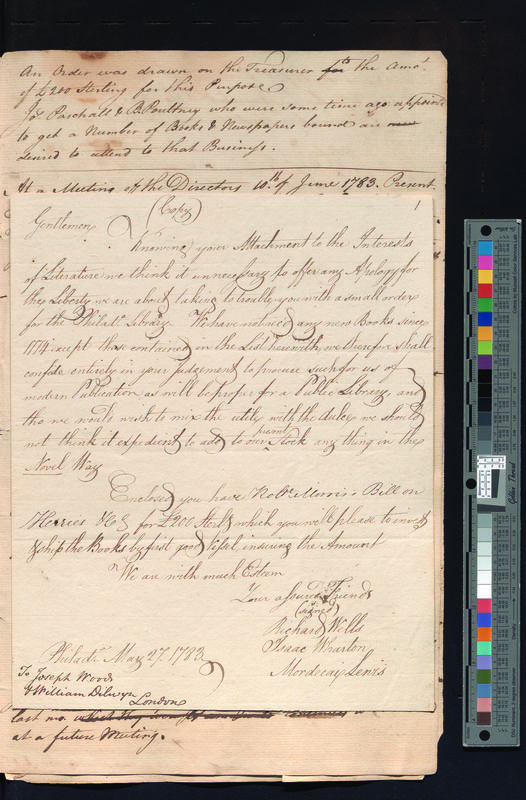 An Order was drawn on the Treasurer for the Amot.
of £200 Sterling for this Purpose
Jos. Paschall & B. Poultney who were some time ago appoint
to get a Number of Books & Newspapers bound are
desired to attend to that Business.
At a Meeting of the Directors 10th. of June 1783. Present
(Copy)
1
Gentlemen
Knowing your Attachment to the Interests
of Literature we think it unnecessary to offer any Apology for
the Liberty we are about taking to trouble you with a small order
for the Philada. Library. We have not received any new Books since
1774 except those contained in the List herewith, we therefore shall
confide entirely in your judgement to procure such for us of
modern Publication as will be proper for a Public Library, and
tho we would wish to mix the utile with the dulce we should
not think it expedient to add to our present Stock any thing in the
Novel Way
Enclosed you have Robt. Morris's Bill on
Herries & Co for £200 Sterlg which you will please to invest
& ship the Books by first good Vessel, insuring the Amount
We are with much Esteem
Your assured Friends
(signed)
Richard Wells
Isaac Wharton
Mordecai Lewis
Philada. May 27. 1783
To Joseph Woods
& William Dilwyn
London
last mo. which they
at a future Meeting.